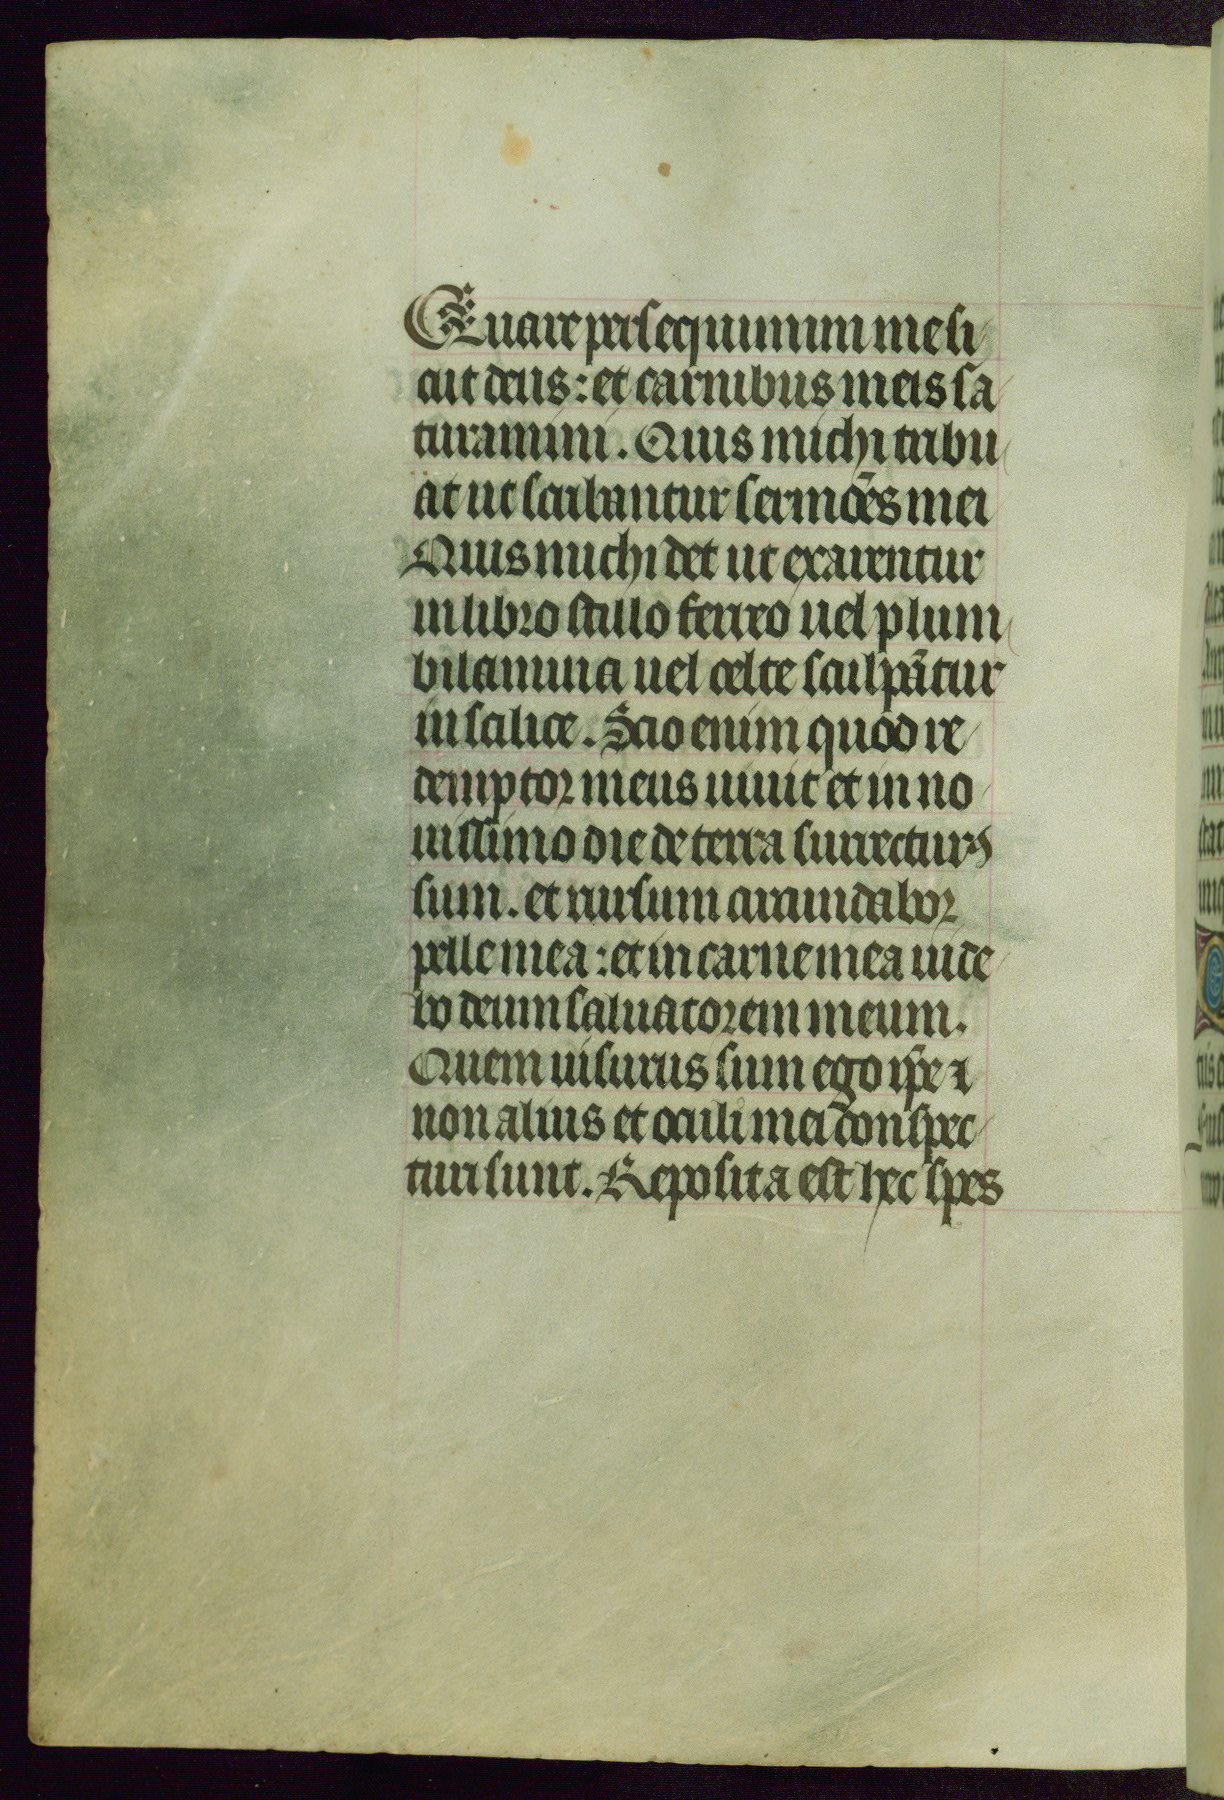 Quare persequimini me si
cut deus: et carnibus meis sa
turamini. Quis michi tribu
at ut scribantur sermōes mei
Quis michi det ut exarentur
in libro stillo ferreo uel plum
bi lamina uel celte sculpātur
in scilice. Scio enim quod re
demptor meus uiuit et in no
uissimo die de terra surrecturꝰ
sum. et rursum circumdabor
pelle mea: et in carne mea uide
bo deum saluatorem meum.
Quem uisurus sum ego ip̄e ⁊
non alius et oculi mei conspec
turi sunt. Reposita est hec spes